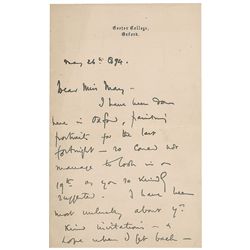 Exeter College,
Oxford.
May 26th 1894.
Dear Miss May –
I have been down
here in Oxford, painting
portraits for the last
fortnight – so could not
manage to look in on
19th as you so kindly
suggested. I have been
most unlucky about yr
kind invitations – &
hope when I get back –